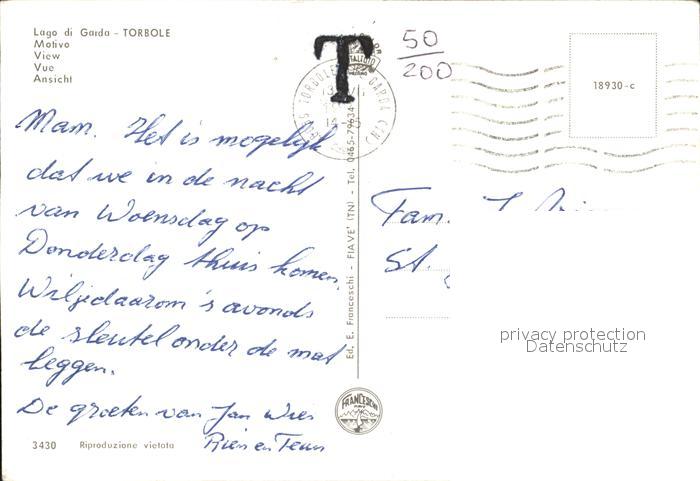 Lago di Garda - TORBOLE
Motivo
View
Vue
Ansicht
T
50
200
18930-c
Mam. Het is mogelijk
dat we in de nacht
van Woensdag op
Donderdag thuis komen.
Wil je daarom 's avonds
de sleutel onder de mat
leggen.
De groeten van Jan Wies
Rien en Teun
Fam.
St.
Ed. E. Franceschi - FIAVE' (TN) - Tel. 0465-79634
FRANCESCHI
3430 Riproduzione vietata
privacy protection
Datenschutz